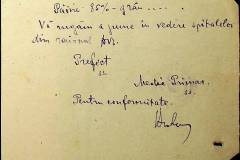 Pâine 85%-grâu.....
Vă rugăm a pune în vedere spitalelor
din raionul Dvs.
Prefect
ss.
Medic Primar
ss.
Pentru conformitate.